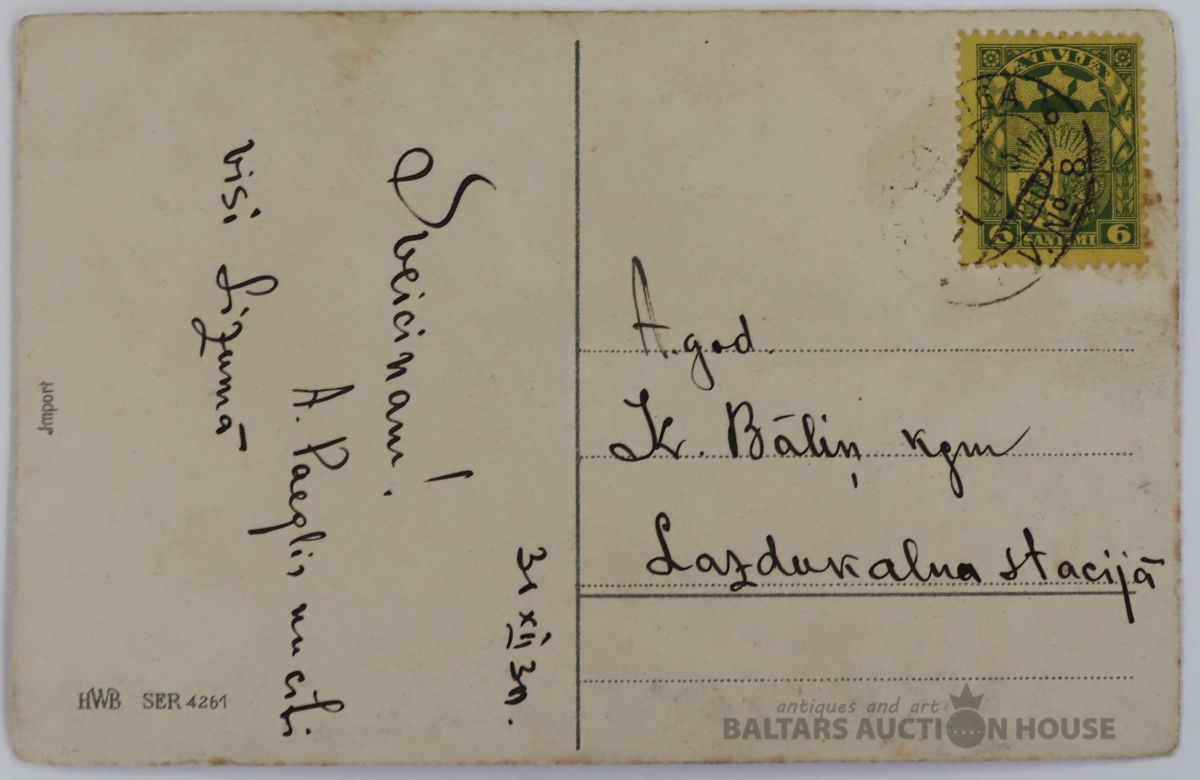 31 XII 30.
Sveicinam!
A. Paeglis un citi
visi Lizumā
A. god.
Kr. Bāliņ kgm
Lazdukalna stacijā
LATVIJA
6 SANTIMI 6
Import
HWB SER 4261
antiques and art
BALTARS AUCTION HOUSE